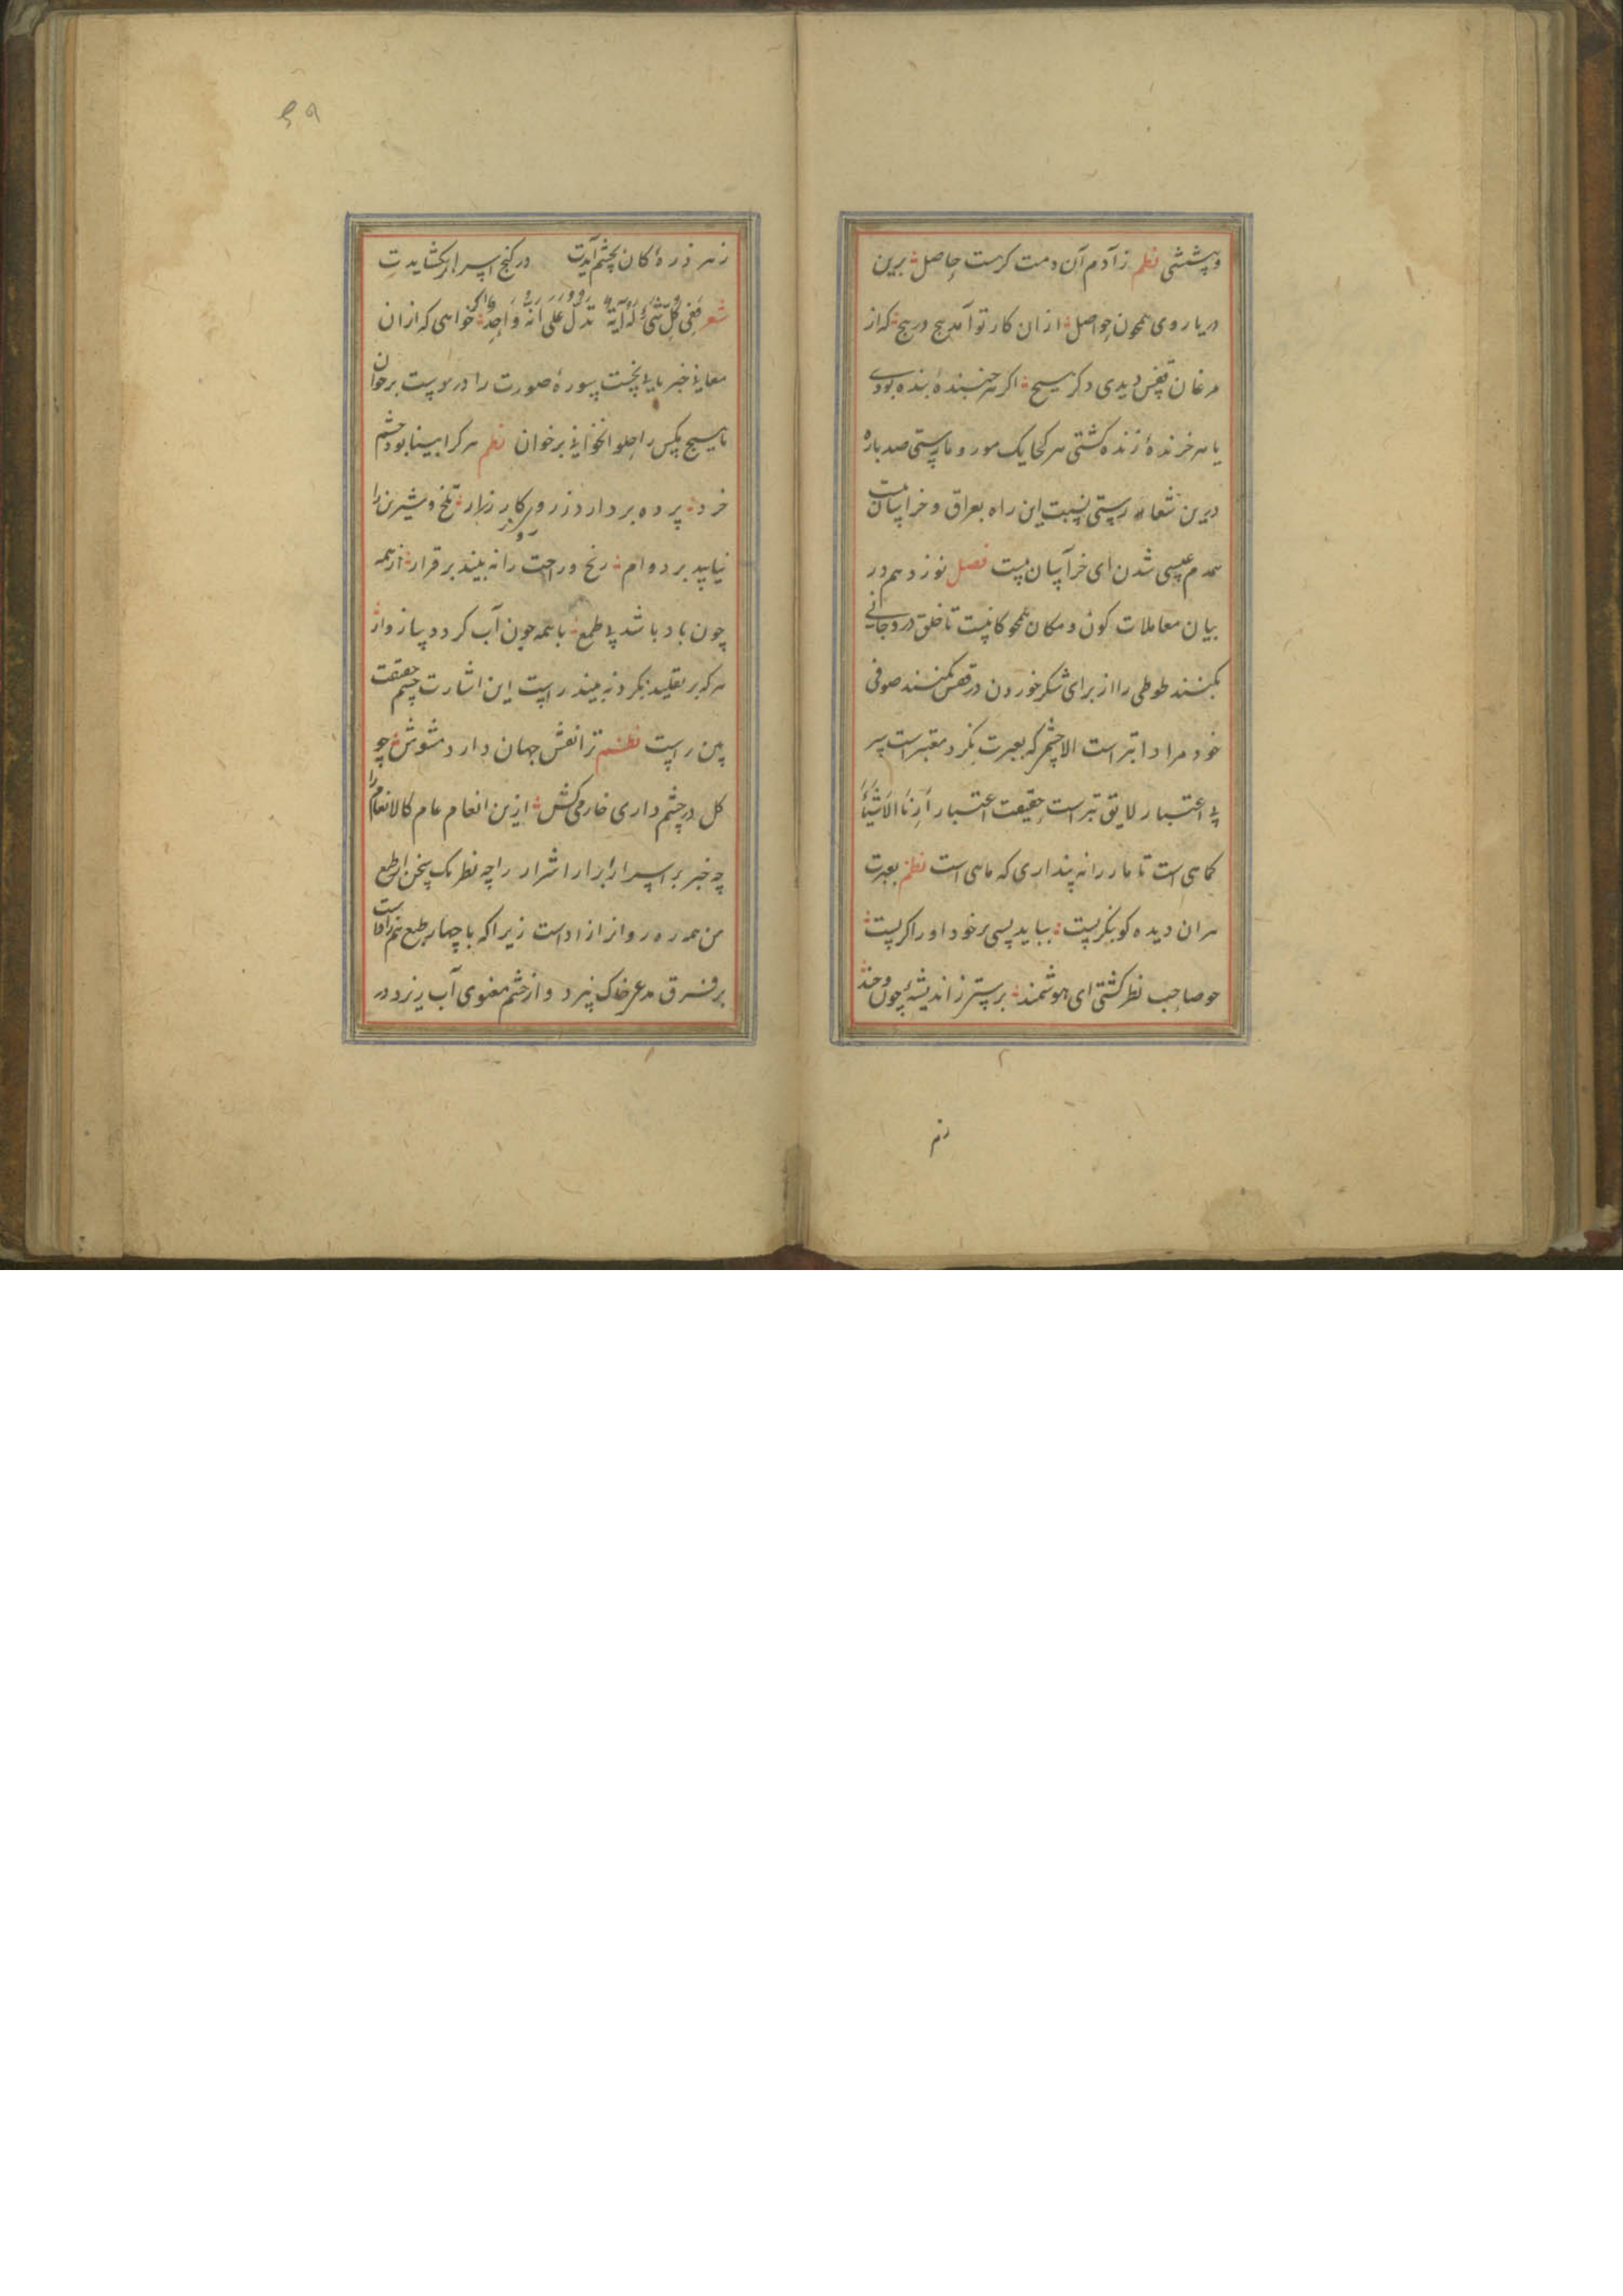 و پششی نظم ز آدم آن دمت کرمست حاصل برین
دریا روی همچون حواصل ازان کار تو آمد هیچ در هیچ که از
مرغان قفس دیدی دکر هیچ اکر هر جنبندهٔ بنده بودی
یا هر خرندهٔ زنده کشتی هر کجا یک مور و مارستی صد باره
درین شعار رستی نسبت این راه بعراق و خراسان نیست
همدم عیسی شدن ای خر آسان نیست فصل نوزدهم در
بیان معاملات کون و مکان همچو کانیست تا خلق در دو جانی
بکنند طوطی را از برای شکر خوردن در قفس کنند صوفی
خود مراد ابتر است الا چشم که بعبرت نکرد معتبر است سر
بی اعتبار لایق تبر است حقیقت اعتبار اَرِنَا الاَشْیَاَ
کماهی است تا مار را نه پنداری که ماهی است نظم بعبرت
هران دیده کو بنکریست بباید بسی بر خود او را کریست
جو صاحب نظر کشتی ای هوشمند بر ستر ز اندیشهٔ چون و چند
زهر
۵۹
زهر ذرهٔ کان بچشم آیدت در کنج اسرار بکشایدت
شعر ففی کل شیء له آیة تدل علی انه واحد خواهی که ازان
معانی خبر یابی نخست سورهٔ صورت را درپوست برخوان
تا هیچ یکس را جلو انخوانی برخوان نظم هر کرا بینا بود چشم
خرد پرده بردارد ز روی کار زار تلخ و شیرین را
نیابید بر دوام رنج و راحت را نه بیند برقرار از همه
چون باد باشد بی طمع با همه چون آب کردد سازوار
هر که بر تقلید نکرد نه بیند راست این اشارت چشم حقیقت
بین راست نظم ترا نقش جهان دارد مشوش چو
کل در چشم داری خار می کش ازین انعام عام کالانعام را
چه خبر بر اسرار ابرار اشرار را چه نظر یک سخن از طبع
من همه ره رو از ازادست زیرا که با چهار طبع هم زادست
بر فرق مدعی خاک بیزد و از خشم معنوی آب ریزد در